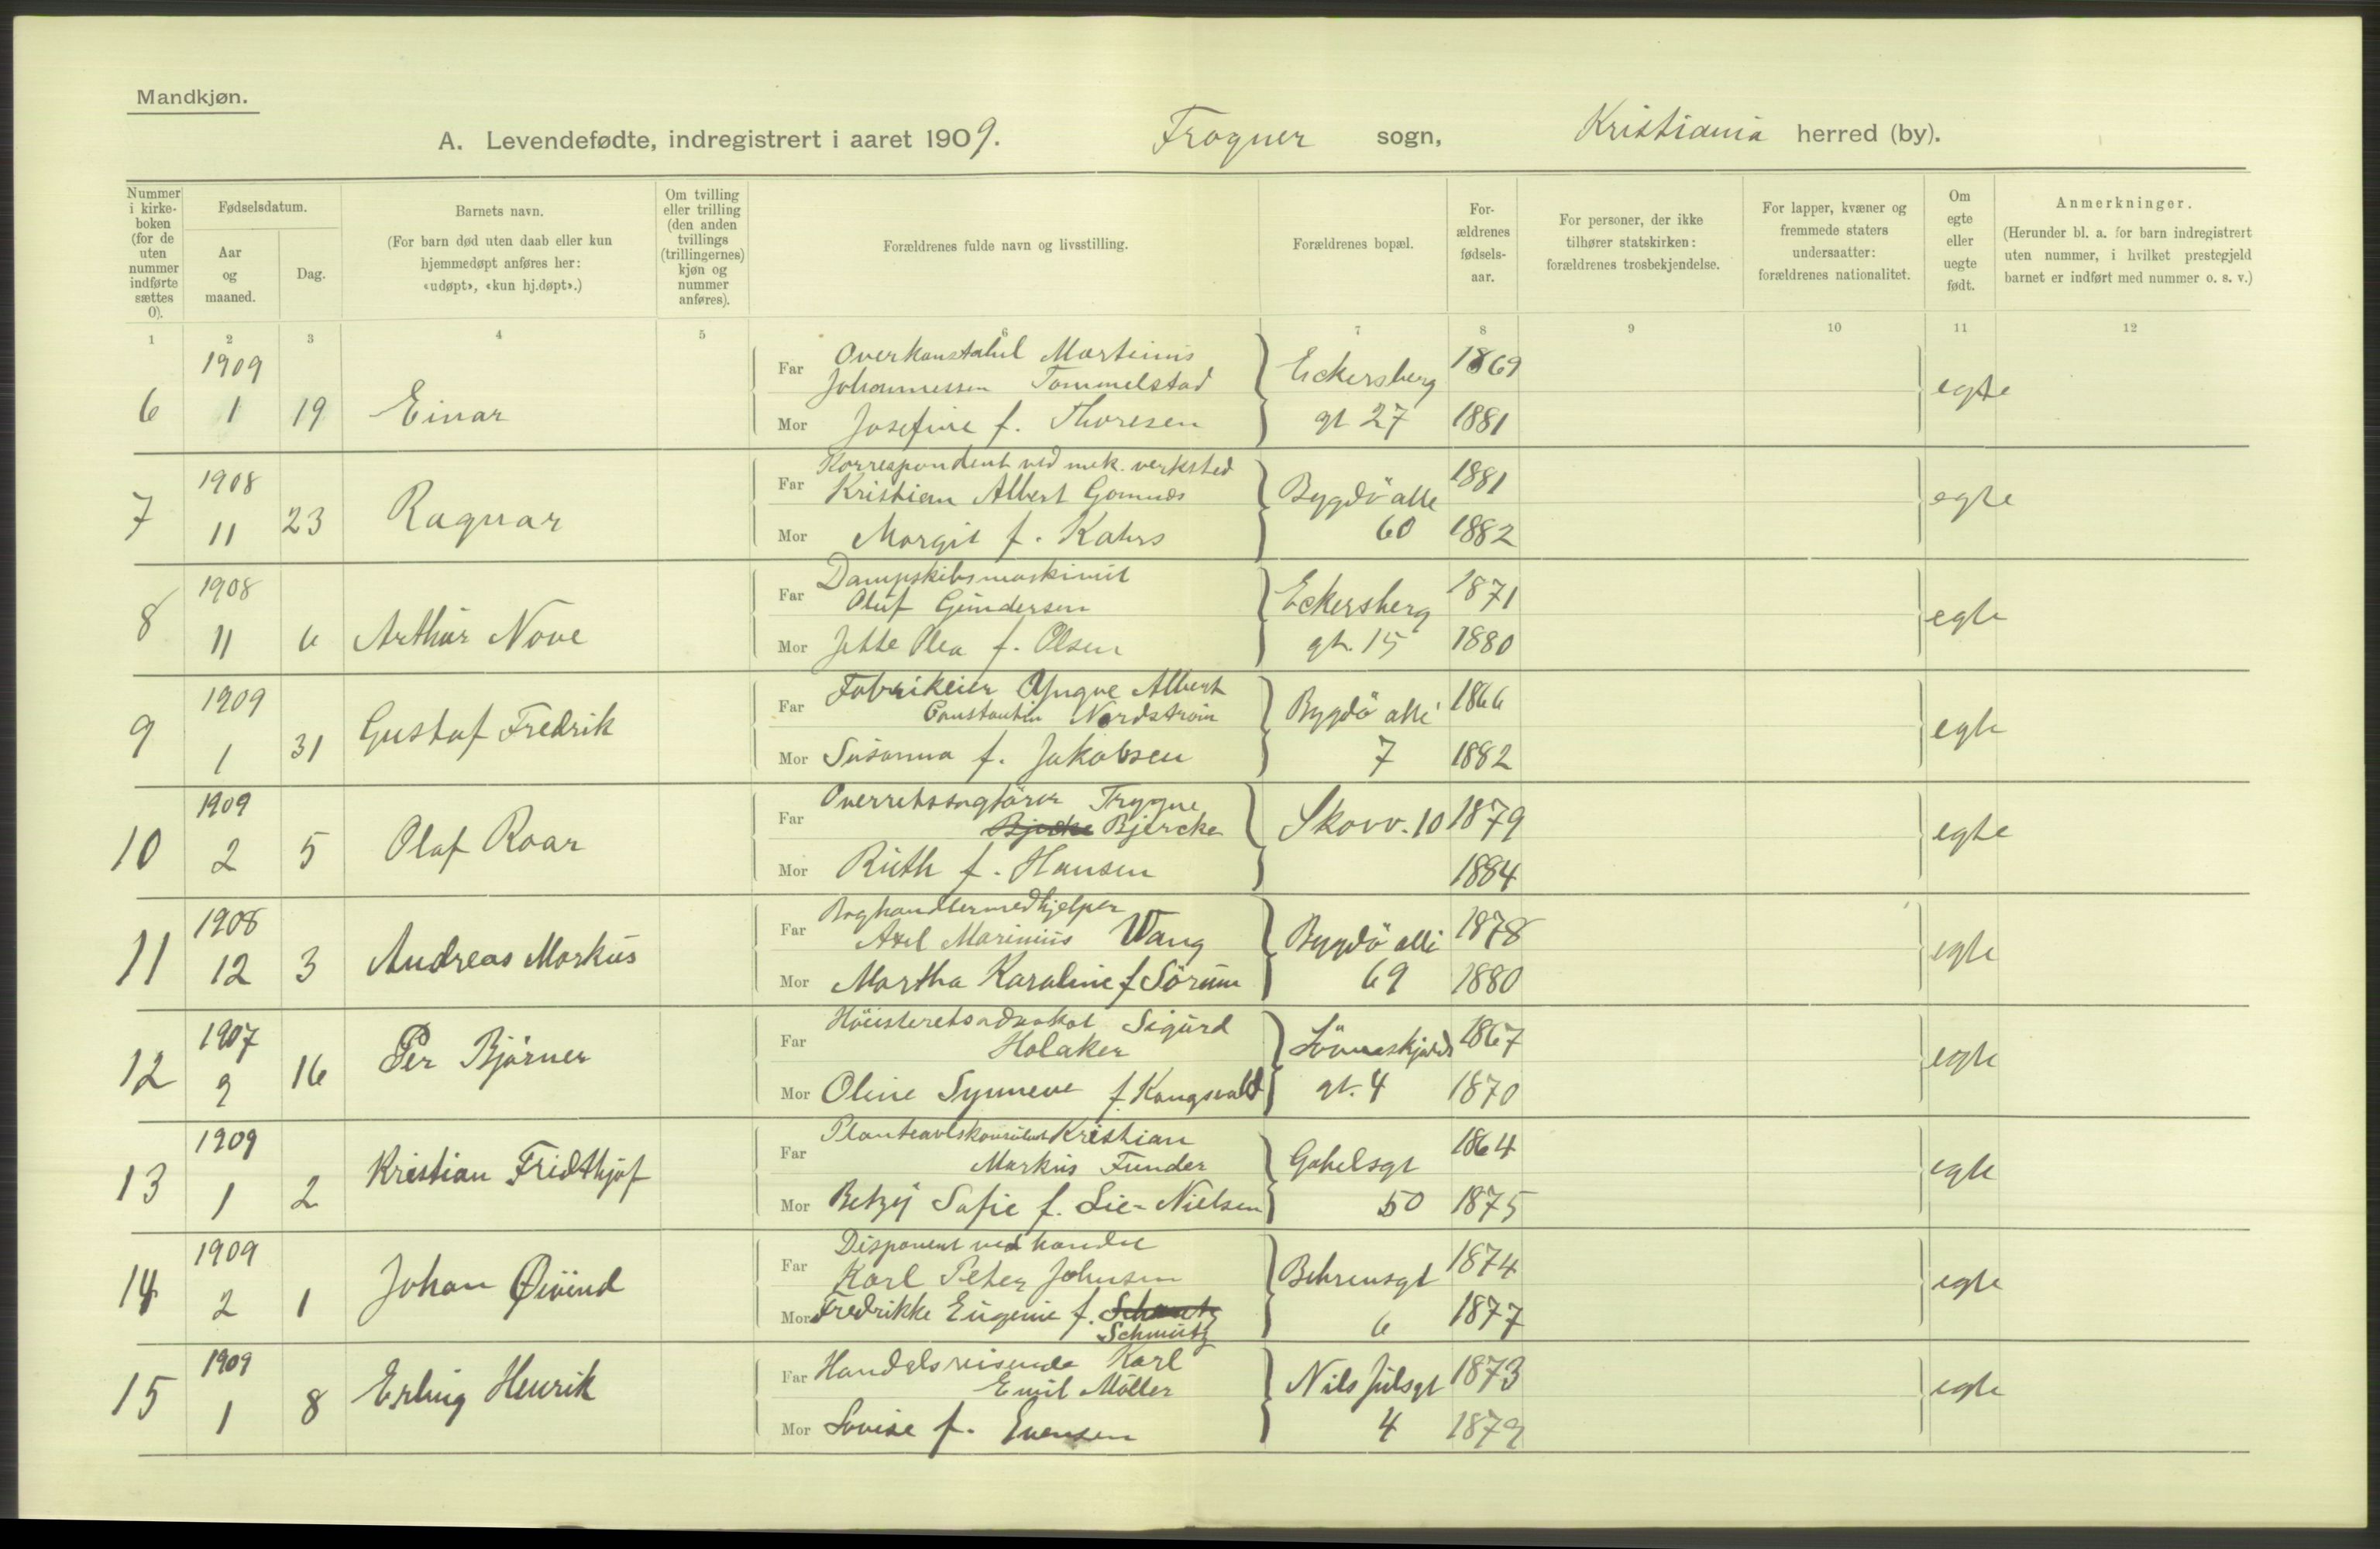 Mandkjøn.
A. Levendefødte, indregistrert i aaret 1909. Frogner sogn, Kristiania herred (by).
Nummer i kirke-boken (for de uten nummer indførte sættes 0).
Fødselsdatum.
Aar og maaned.
Dag.
Barnets navn.
(For barn død uten daab eller kun hjemmedøpt anføres her: «udøpt», «kun hj.døpt».)
Om tvilling eller trilling (den anden tvillings (trillingernes) kjøn og nummer anføres).
Forældrenes fulde navn og livsstilling.
Forældrenes bopæl.
For-ældrenes fødsels-aar.
For personer, der ikke tilhører statskirken: forældrenes trosbekjendelse.
For lapper, kvæner og fremmede staters undersaatter: forældrenes nationalitet.
Om egte eller uegte født.
Anmerkninger.
(Herunder bl. a. for barn indregistrert uten nummer, i hvilket prestegjeld barnet er indført med nummer o. s. v.)
1 2 3 4 5 6 7 8 9 10 11 12
1909 Far Overkonstabel Martinius 1869
Johannessen Tommelstad Eckersberg egte
6 1 19 Einar Mor Josefine f. Thoresen gt 27 1881
1908 Korrespondent ved mek. verksted 1881
Far Kristian Albert Bygdö alle egte
7 11 23 Ragnar Mor Margit f. Kahrs 60 1882
1908 Dampskibsmaskinist 1871
Far Oluf Gundersen Eckersberg egte
8 11 6 Arthur Nove Mor Jette Olea f. Olsen gt. 15 1880
1909 Far Fabrikeier Yngve Albert 1866
Constantin Nordström Bygdö alle egte
9 1 31 Gustaf Fredrik Mor Susanna f. Jakobsen 7 1882
1909 Overretssagförer Trygve
Far Bjercke Skovv. 10 1879 egte
10 2 5 Olaf Roar Mor Ruth f. Hansen 1884
1908 Boghandlermedhjelper 1878
Far Axel Marinius Wang Bygdö alle egte
11 12 3 Andreas Markus Mor Martha Karoline f Sörum 69 1880
1907 Höiesteretsadvokat Sigurd 1867
Far Holaker egte
12 9 16 Per Bjørner Mor Oline Synneve f. Kongsvold gt. 4 1870
1909 Planteavlskonsulent Kristian 1864
Far Markus Funder Gabelsgt egte
13 1 2 Kristian Fridthjof Mor Betzy Sofie f. Lie-Nielsen 50 1875
1909 Disponent ved handel 1874
Far Karl Peter Johnsen Behrensgt egte
14 2 1 Johan Øivind Mor Fredrikke Eugenie f. 6 1877
Schmutz
1909 Far Handelsreisende Karl 1873
Emil Möller Nils Julsgt egte
15 1 8 Erling Henrik Mor Lovise f. Evensen 4 1879